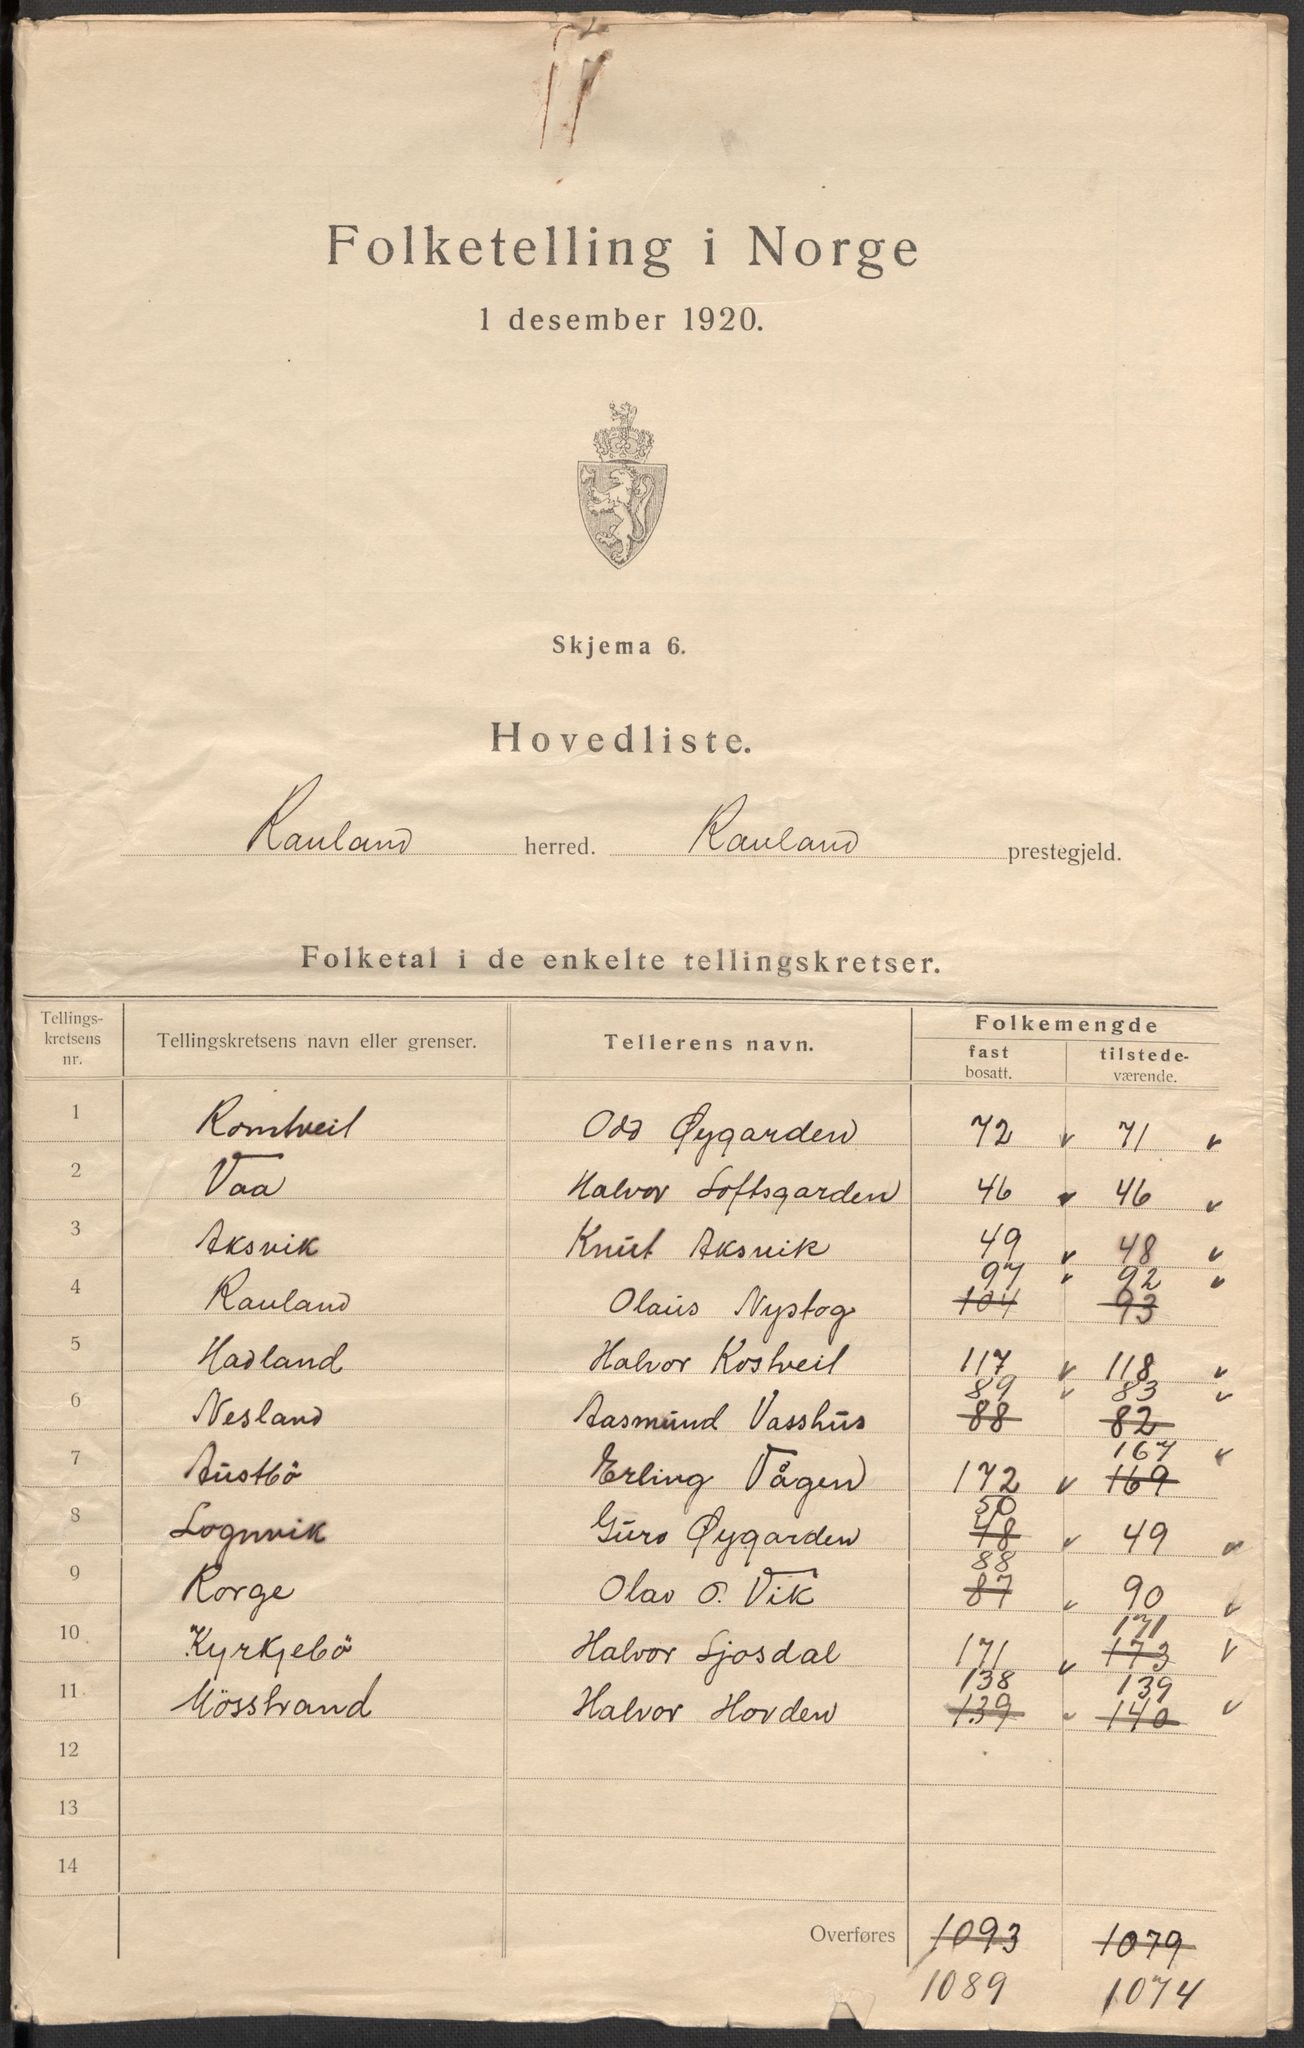 Folketelling i Norge
1 desember 1920.
Skjema 6.
Hovedliste.
Rauland herred. Rauland prestegjeld.
Folketal i de enkelte tellingskretser.
Tellings-kretsens nr. Tellingskretsens navn eller grenser. Tellerens navn. Folkemengde fast bosatt. tilstede-værende.
1 Romtveit Odd Øygarden 72 v 71 v
2 Vaa Halvor Loftsgarden 46 v 46 v
3 Aksvik Knut Aksvik 49 v 48 v
97 v 92 v
4 Rauland Olaus Nystog 104 93
5 Hadland Halvor Kostveit 117 v 118 v
89 v 83 v
6 Nesland Aasmund Vasshus 88 82
167 v
7 Austbö Erling Vågen 172 v 169
50
8 Lognvik Guro Øygarden 48 v 49 v
88
9 Korge Olav O. Vik 87 v 90 v
171
10 Kyrkjebö Halvor Ljosdal 171 v 173 v
138 139
11 Mösstrand Halvor Hovden 139 v 140 v
12
13
14
Overføres 1093 1079
1089 1074